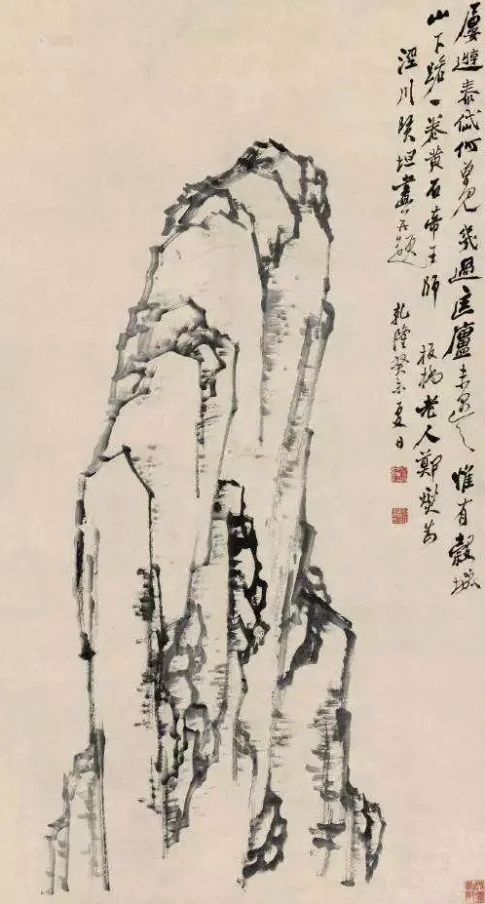 屢遊泰岱何曾見幾過匡廬未遇之惟有穀城
山下路一卷黃石帝王師板橋老人鄭燮為
涇川賢坦畫并題乾隆癸未夏日